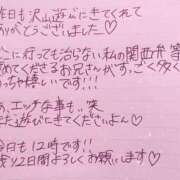 昨日も沢山遊びにきてくれて
ありがとうございました♡
どこに行っても治らない私の関西弁
褒めてくださるお兄さんがすっごく多く
嬉しいです!!!
あ、エッチな事も..笑
また遊びにきてくださいよん♡
今日も12時です!!
残り2日間よろしくお願いします♡